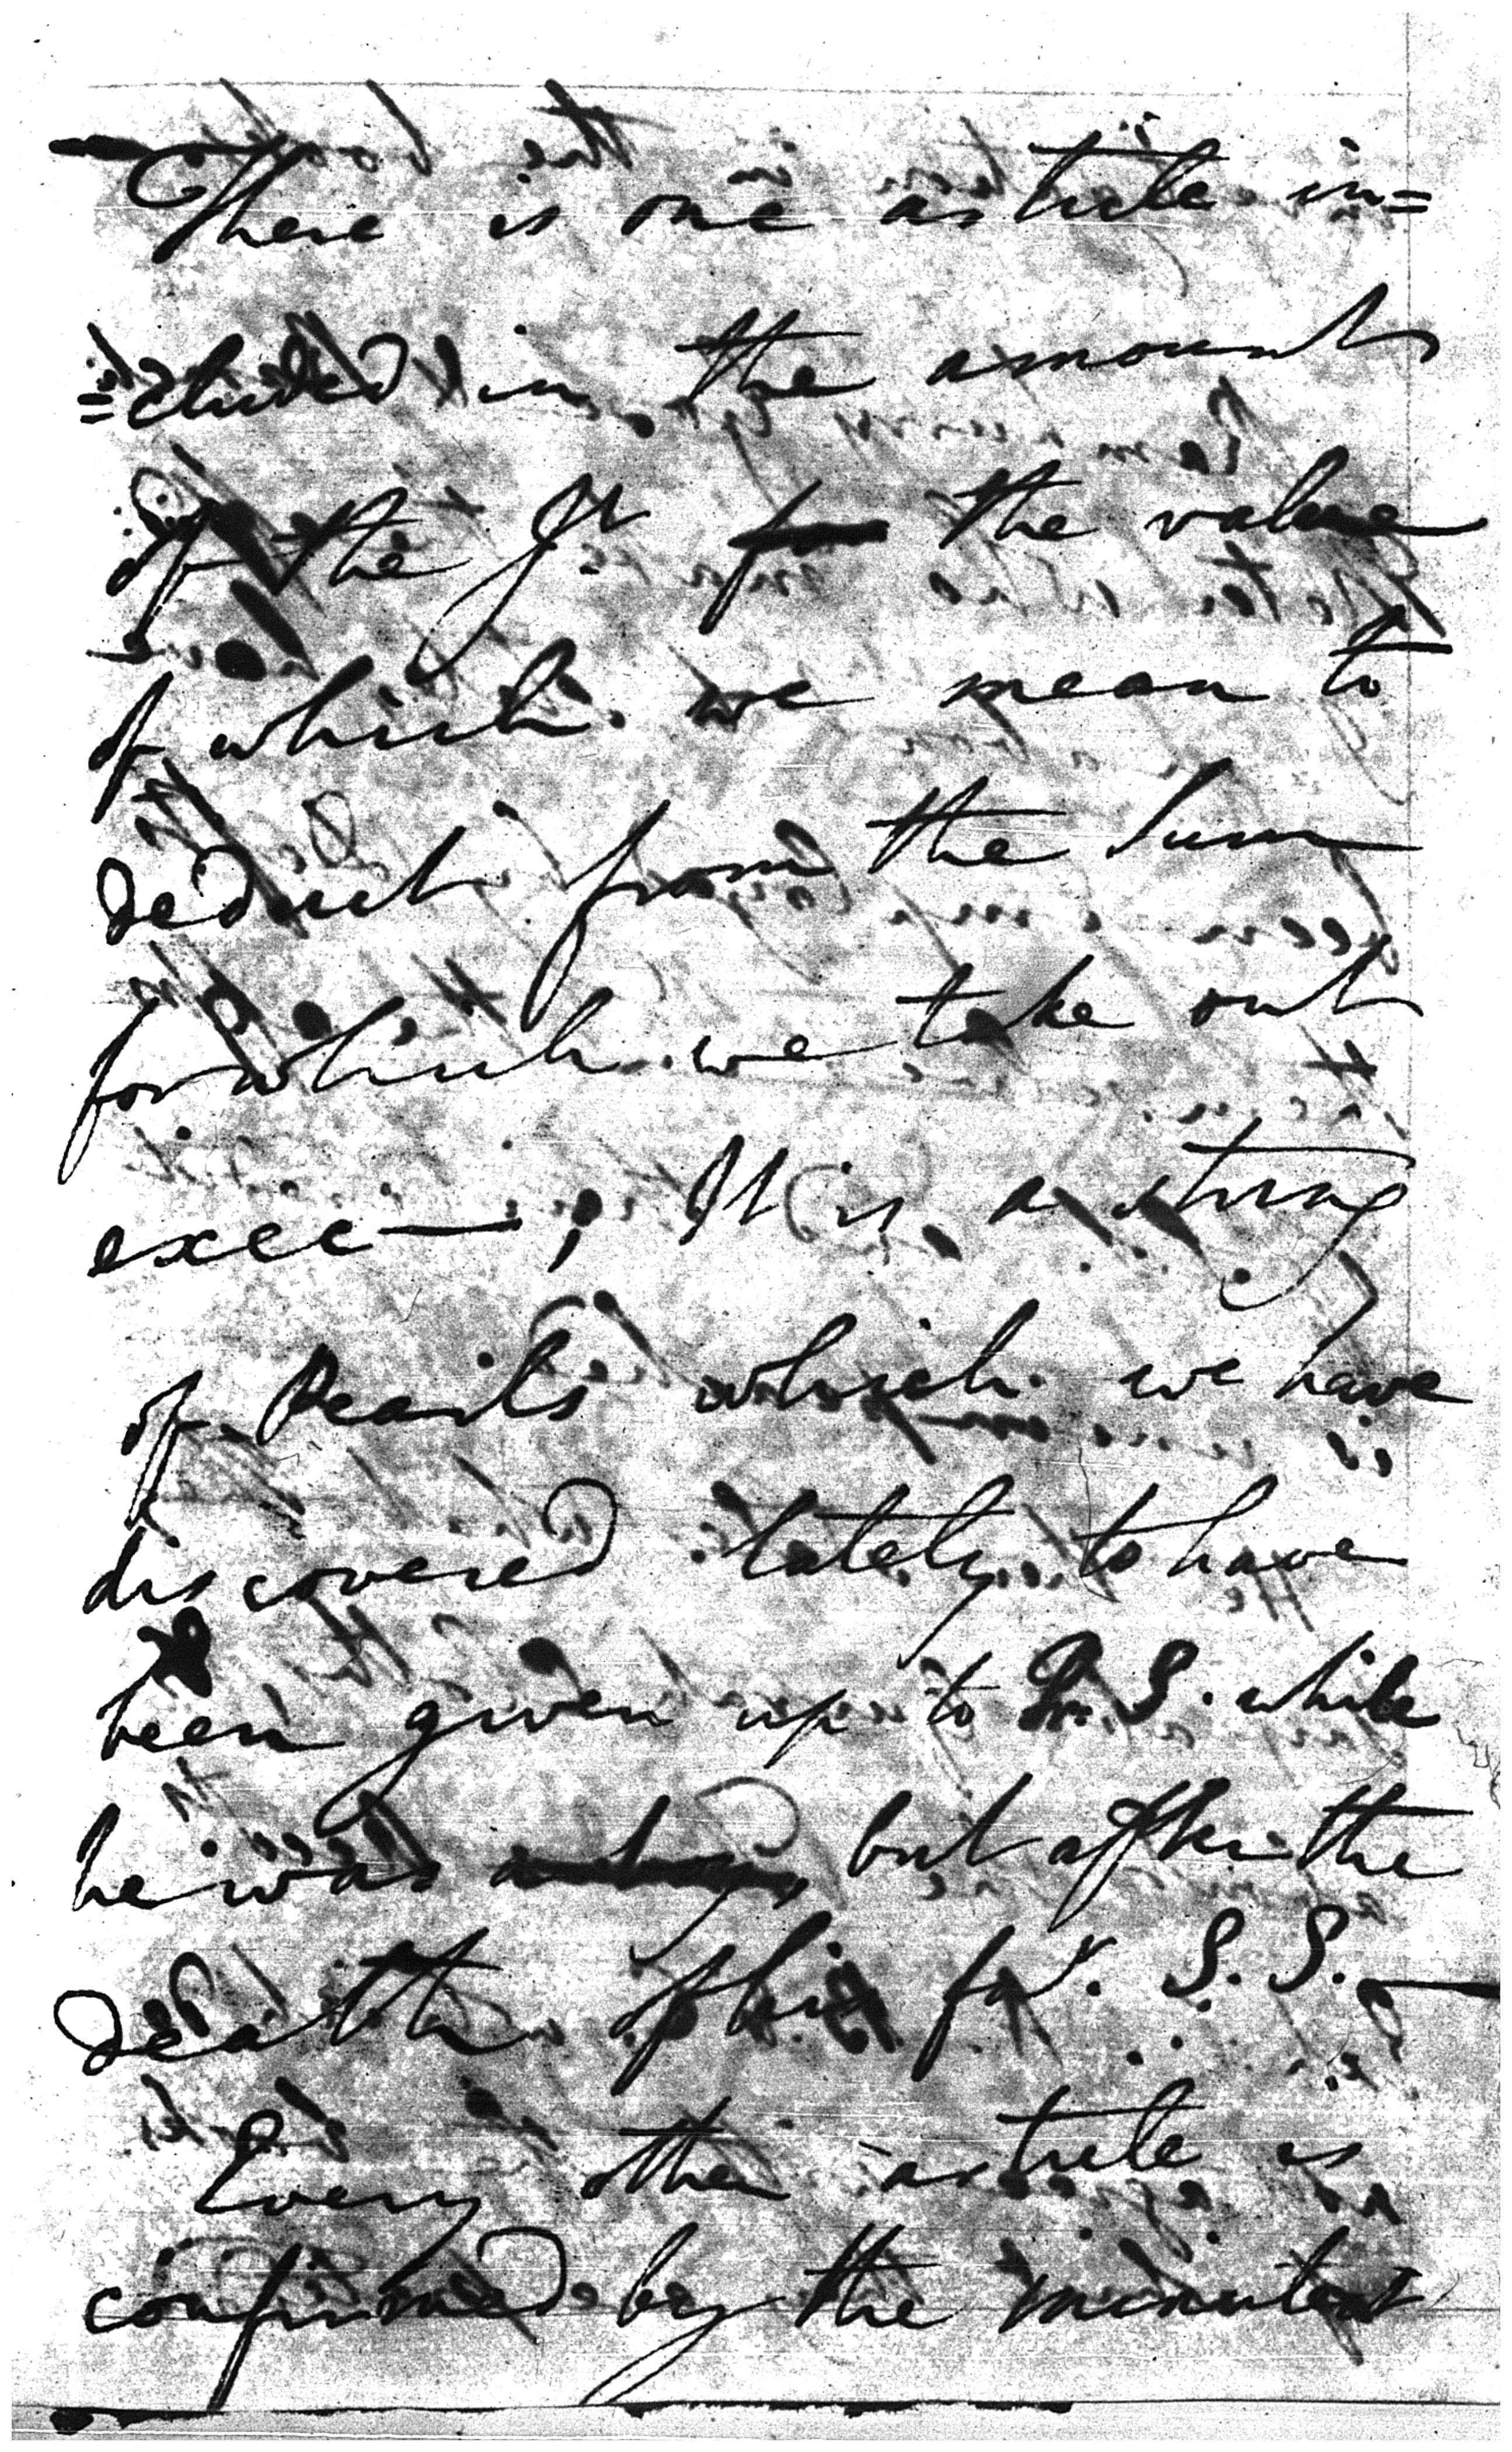 There is one article in=
=cluded in the amount
of the Jt. the value
of which we mean to
deduct from the Sum
for which we take out
exec—; It is a string
of Pearls which we have
discovered lately to have
been given up to S. while
he was but after the
death of his far. S. S. —
Every other article is
confirmed by the minutest